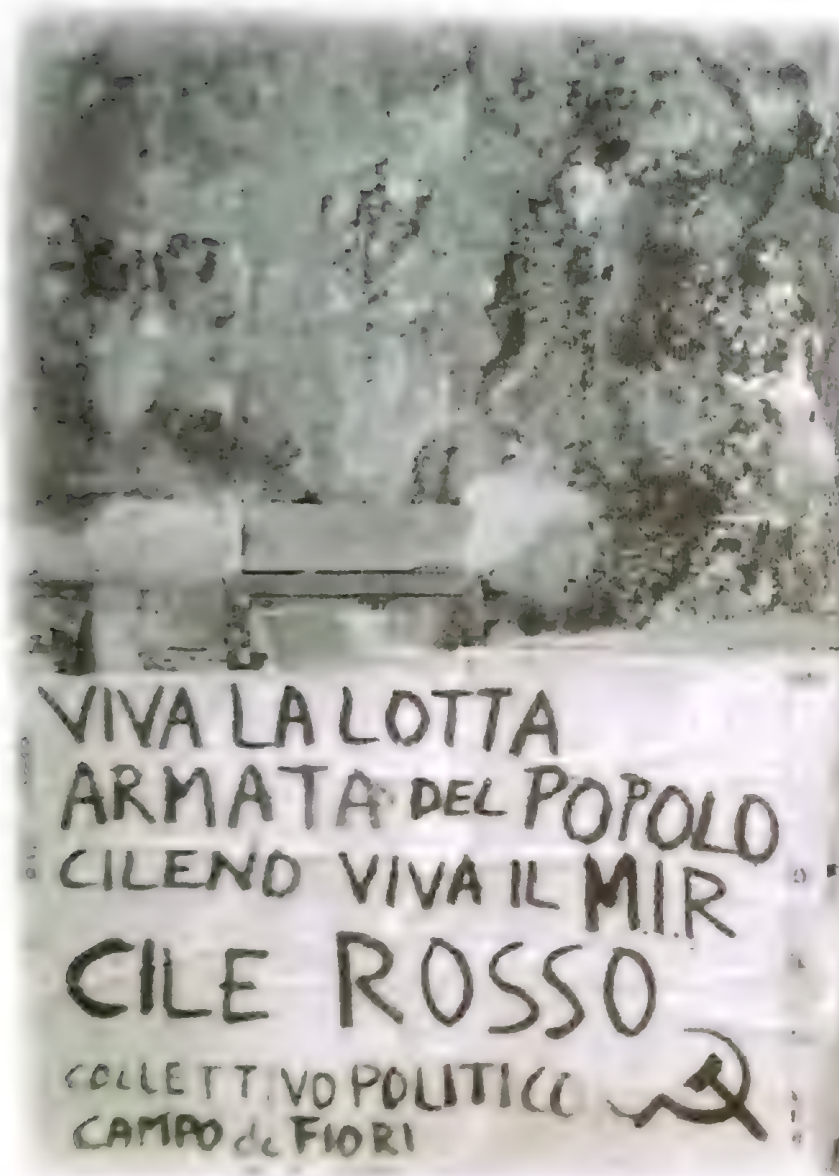 VIVA LA LOTTA
ARMATA DEL POPOLO
CILENO VIVA IL M.I.R
CILE ROSSO
COLLETTIVO POLITICO
CAMPO de FIORI